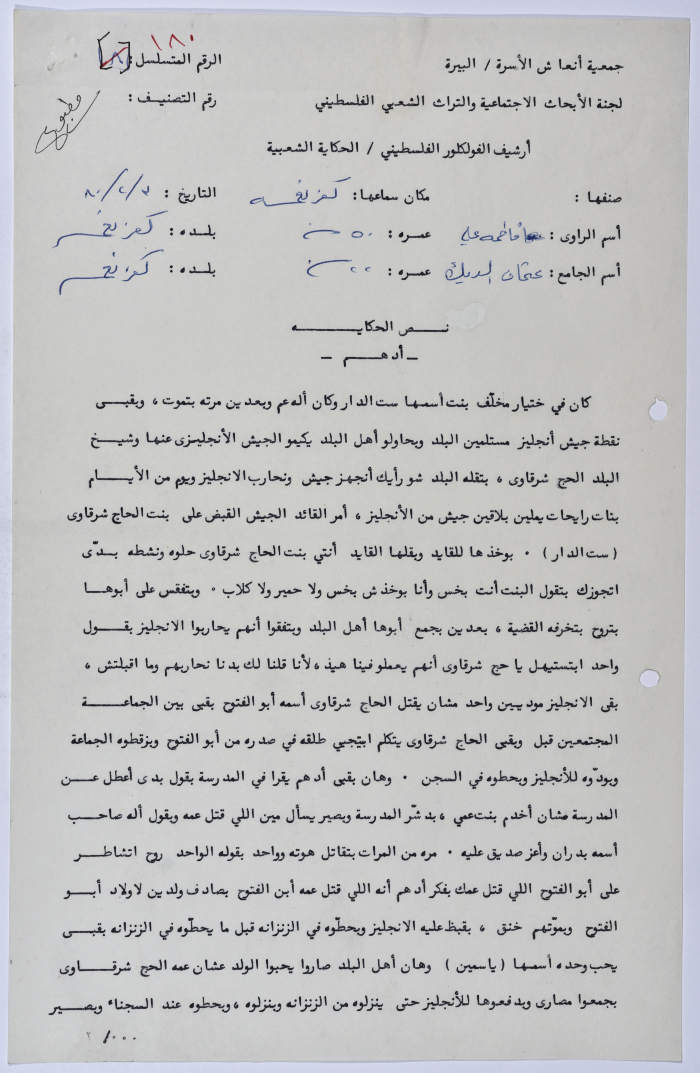 ١٨٠
جمعية أنعاش الأسرة / البيرة الرقم المتسلسل : [٨]
لجنة الأبحاث الاجتماعية والتراث الشعبي الفلسطيني رقم التصنيف :
مطبوع
أرشيف الفولكلور الفلسطيني / الحكاية الشعبية
صنفها : مكان سماعها: كفرنعمه التاريخ : ٨٠/٢/٣
أسم الراوى : فاطمه علي عمره : ٥٠ سن بلده : كفرنعمه
أسم الجامع: عثمان الديك عمره : ٢٢ سن بلده : كفرنعمه
نص الحكايه
ـ أدهم ـ
كان في ختيار مخلّف بنت أسمها ست الدار وكان أله عم وبعدين مرته بتموت ، وبقى
نقطة جيش أنجليز مستلمين البلد وبحاولو أهل البلد يكيمو الجيش الأنجليزى عنها وشيخ
البلد الحج شرقاوى ، بتقله البلد شو رأيك أنجهز جيش ونحارب الانجليز ويوم من الأيام
بنات رايحات يملين بلاقين جيش من الأنجليز ، أمر القائد الجيش القبض على بنت الحاج شرقاوى
( ست الدار ) ٠ بوخذها للقايد ويقلها القايد أنتي بنت الحاج شرقاوى حلوه ونشطه بدّى
اتجوزك بتقول البنت أنت بخس وأنا بوخذ ش بخس ولا حمير ولا كلاب ٠ وبتفقس على أبوها
بتروح بتخرفه القضية ، بعدين بجمع أبوها أهل البلد وبتفقوا أنهم يحاربوا الانجليز بقول
واحد ابتستيهل يا حج شرقاوى أنهم يعملو فينا هيذ ، لأنا قلنا لك بدنا نحاربهم وما اقبلتش ،
بقى الانجليز موديين واحد مشان يقتل الحاج شرقاوى أسمه أبو الفتوح بقى بين الجماعة
المجتمعين قبل وبقى الحاج شرقاوى يتكلم ابتيجي طلقه في صدره من أبو الفتوح وبزقطوه الجماعة
وبودّوه للأنجليز وبحطوه في السجن ٠ وهان بقى أدهم يقرا في المدرسة بقول بدى أعطل عن
المدرسة مشان أخدم بنت عمي ، بدشّر المدرسة وبصير يسأل مين اللي قتل عمه وبقول أله صاحب
أسمه بدران وأعز صديق عليه ٠ مره من المرات بتقاتل هوته وواحد بقوله الواحد روح اتشاطر
على أبو الفتوح اللي قتل عمك بفكر أدهم أنه اللي قتل عمه أبن الفتوح بصادف ولدين لاولاد أبو
الفتوح وبموّتهم خنق ، بقبظ عليه الانجليز وبحطّوه في الزنزانه قبل ما يحطّوه في الزنزانه بقى
يحب وحده أسمها ( ياسمين ) وهان أهل البلد صاروا يحبوا الولد عشان عمه الحج شرقاوى
بجمعوا مصارى وبدفعوها للأنجليز حتى ينزلوه من الزنزانه وبنزلوه ، وبحطوه عند السجناء وبصير
٢ /٠٠٠